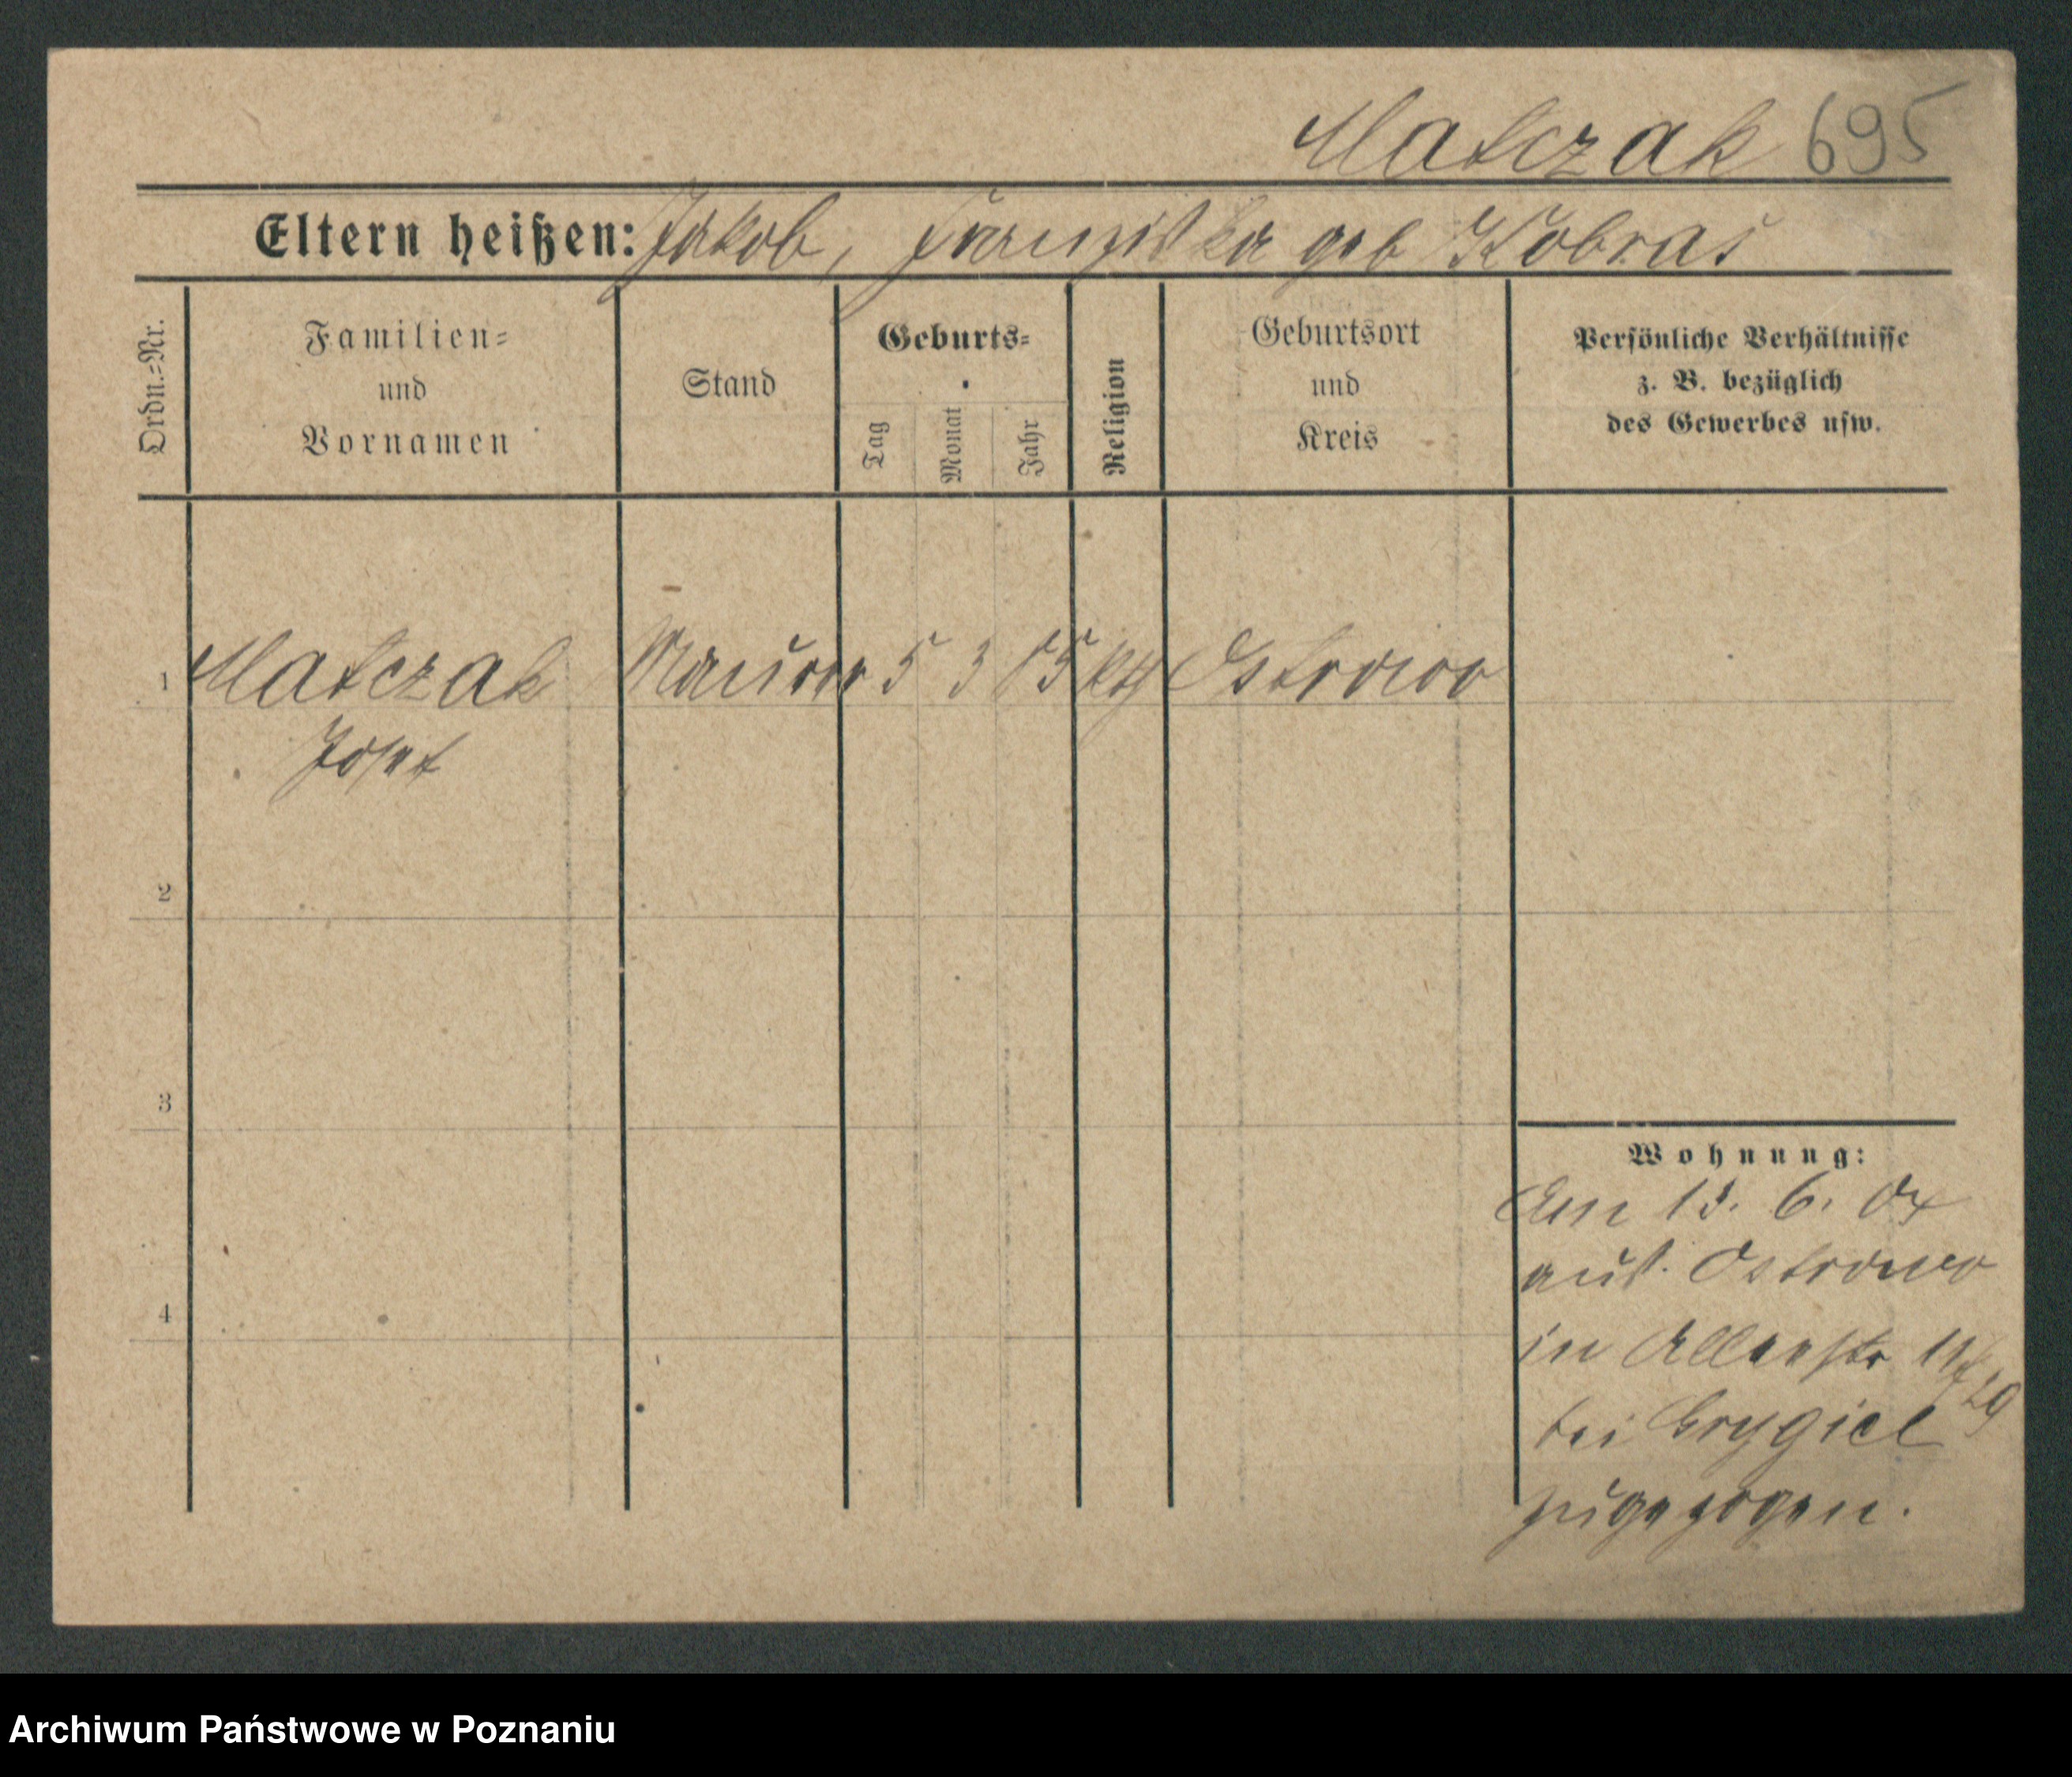 Matczak 695
Eltern heißen: Jakob, Franziska geb Kobras
Ordn.=Nr.
Familien=
und
Vornamen
Stand
Geburts=
Tag
Monat
Jahr
Religion
Geburtsort
und
Kreis
Persönliche Verhältnisse
z. B. bezüglich
des Gewerbes usw.
1 Matczak Maurer 5 3 85 kth Ostrowo
Josef
2
3
4
Wohnung:
Am 6. 04
aus Ostrowo
in
bei Grygiel
zugezogen.
Archiwum Państwowe w Poznaniu